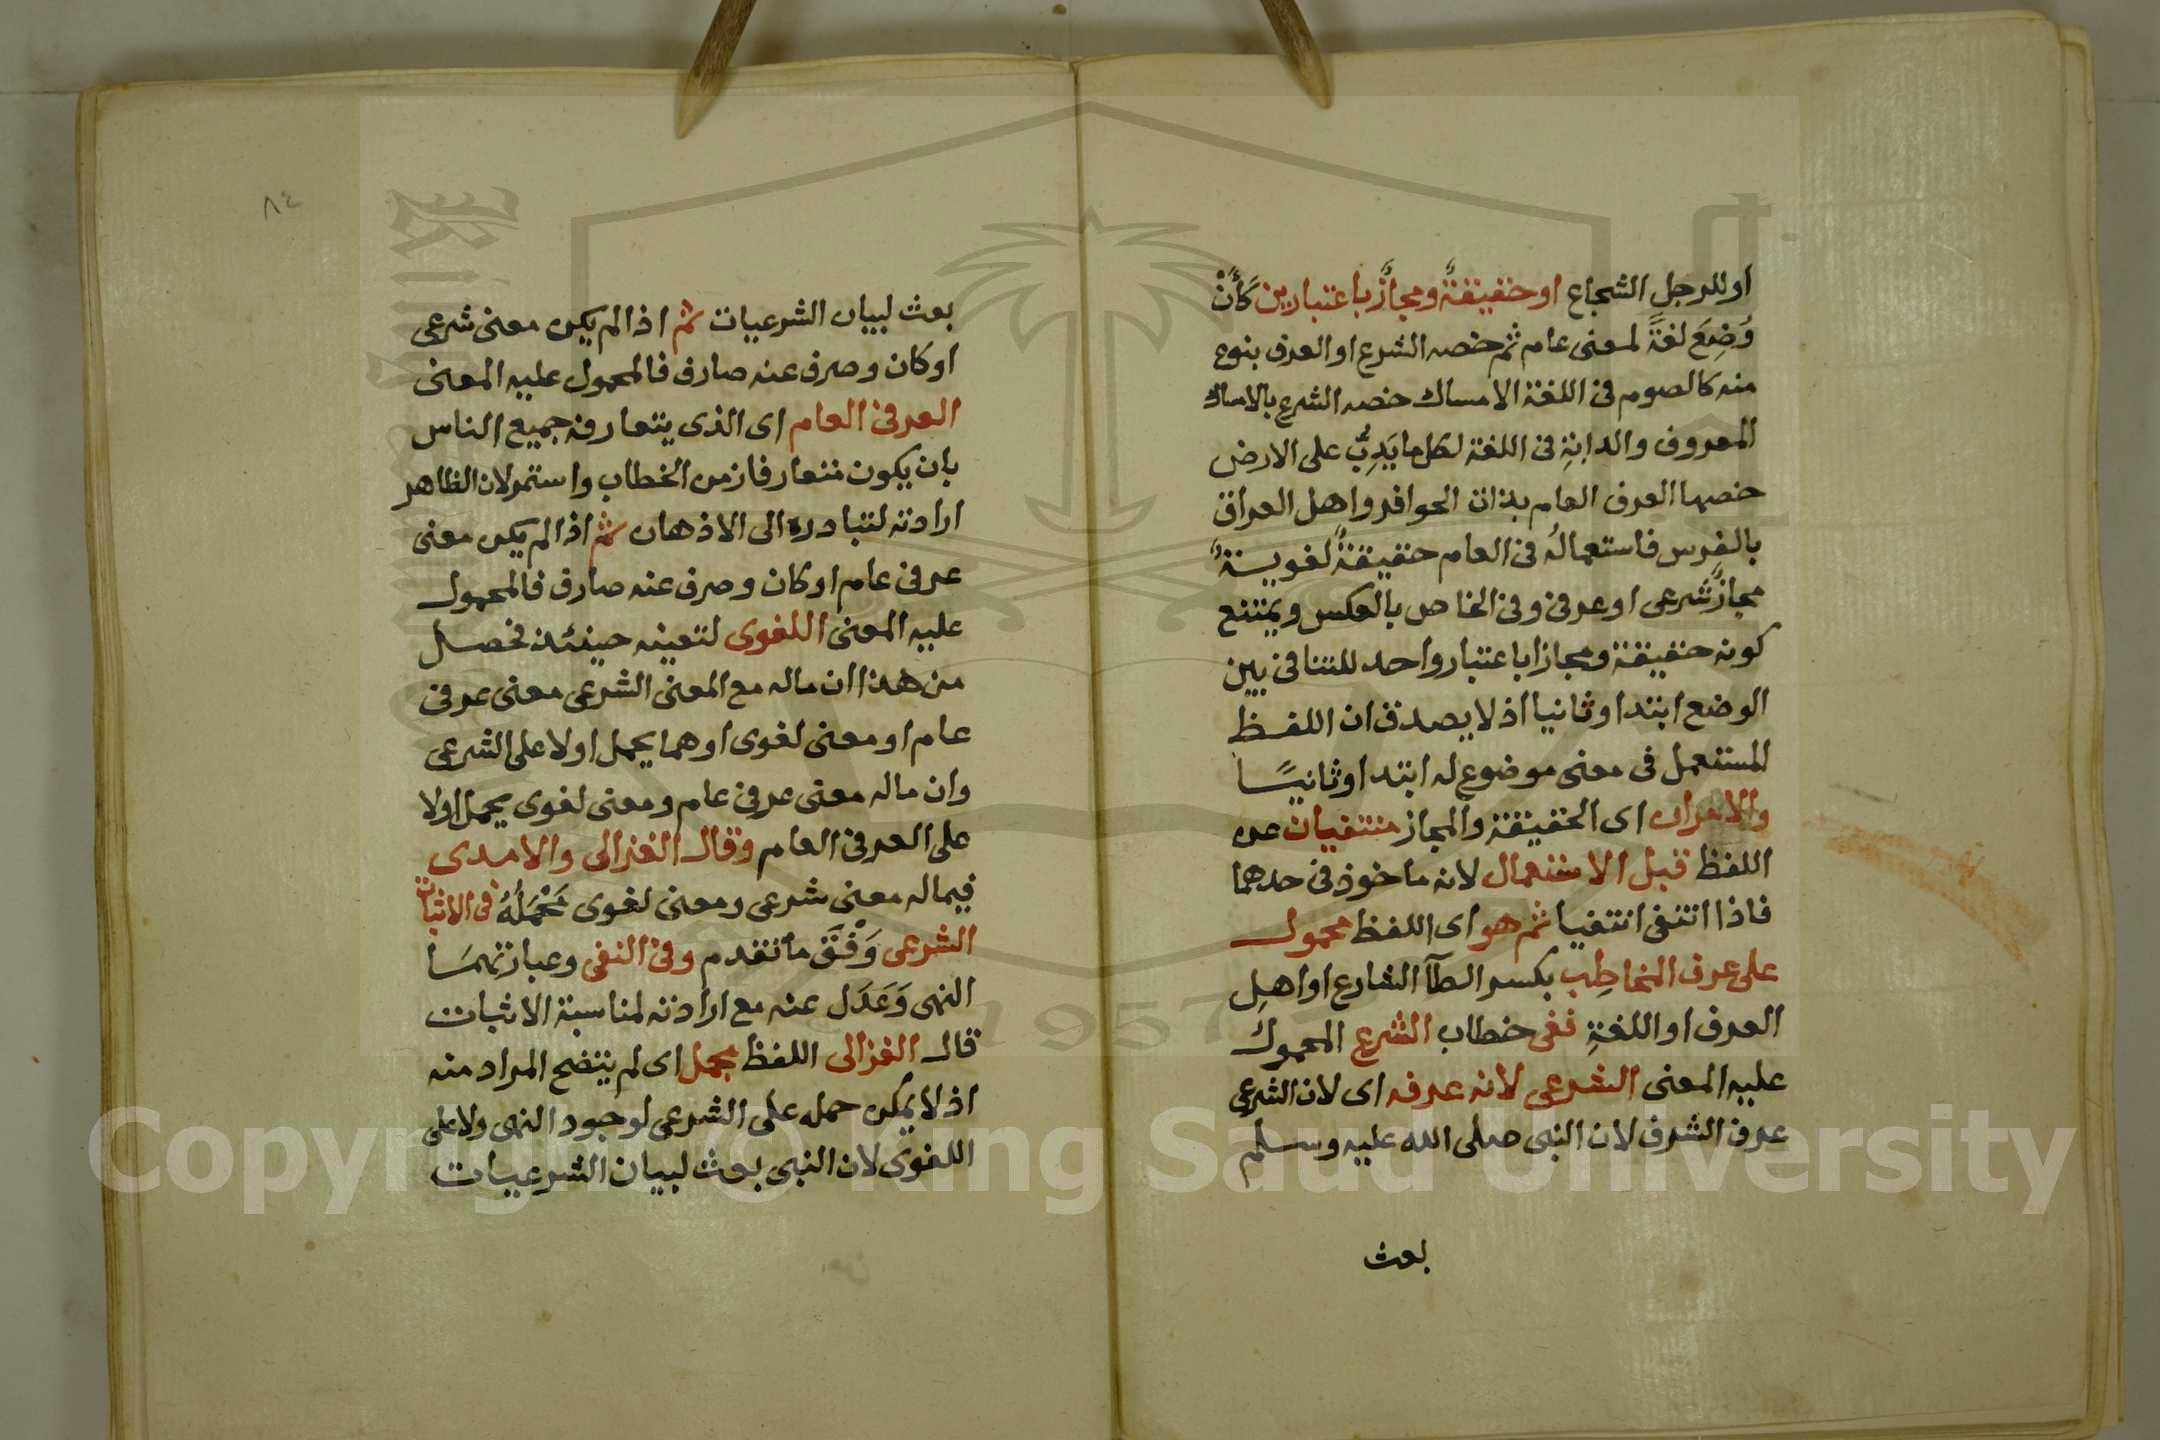 او للرجل الشجاع او حقيقةٌ ومجازٌ باعتبارين كَأَنْ
وُضِعَ لغةً لمعنى عام ثم خصه الشرع او العرف بنوع
منه كالصوم فى اللغة الامساك خصه الشرع بالامساك
المعروف والدابةِ فى اللغة لكل ما يَدِبُّ على الارض
خصها العرف العام بذات الحوافر واهل العراق
بالفرس فاستعمالُه فى العام حقيقةٌ لغويةٌ
مجازٌ شرعى او عرفى وفى الخاص بالعكس ويمتنع
كونه حقيقة ومجازا باعتبار واحد للتنافى بين
الوضع ابتدا وثانيا اذ لا يصدق ان اللفظ
المستعمل فى معنى موضوع له ابتدا وثانيًا
والامران اى الحقيقة والمجاز منتفيان عن
اللفظ قبل الاستعمال لانه ماخوذ فى حدهما
فاذا انتفى انتفيا ثم هو اى اللفظ محمول
على عرف المخاطِب بكسر الطآ الشارع او اهلِ
العرف او اللغةِ ففى خطاب الشرع المحمول
عليه المعنى الشرعى لانه عرفه اى لان الشرعى
عرف الشرف لان النبى صلى الله عليه وسلم
بعث
٨٤
بعث لبيان الشرعيات ثم اذا لم يكن معنى شرعى
او كان وصرف عنه صارف فالمحمول عليه المعنى
العرفى العام اى الذى يتعارفه جميع الناس
بان يكون متعارفا زمن الخطاب واستمر لان الظاهر
ارادته لتبادره الى الاذهان ثم اذا لم يكن معنى
عرفى عام او كان وصرف عنه صارف فالمحمول
عليه المعنى اللغوى لتعينه حينئذ فحصل
من هذا ان ماله مع المعنى الشرعى معنى عرفى
عام او معنى لغوى او هما يحمل اولا على الشرعى
وان ماله معنى عرفى عام ومعنى لغوى يحمل اولا
على العرفى العام وقال الغزالى والامدى
فيماله معنى شرعى ومعنى لغوى مَحْمَلُهُ فى الاثبات
الشرعى وَفْقَ ما تقدم وفى النفى وعبارتهما
النهى وَعَدَل عنه مع ارادته لمناسبة الاثبات
قال الغزالى اللفظ مجمل اى لم يتضح المراد منه
اذ لا يمكن حمله على الشرعى لوجود النهى ولا على
اللغوى لان النبى بعث لبيان الشرعيات
Copyright © King Saud University
1957